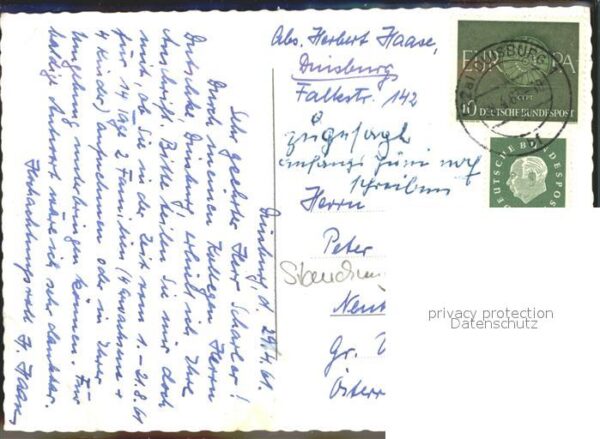 Abs. Herbert Haase,
Duisburg
Falkstr. 142
zugesagt
anfangs Juni noch
schreiben
Herrn
Peter
Neu
Gr.
Österr
Duisburg, d. 29.4.61
Sehr geehrter Herr
Durch meinen Kollegen Herrn
Duisburg, erhielt ich Ihre
Anschrift. Bitte teilen Sie mir doch
mit, ob Sie in der Zeit vom 1.-21.8.61
für 14 Tage 2 Familien (4 Erwachsene +
4 Kinder) aufnehmen oder in Ihrer
Umgebung unterbringen können. Für
baldige Antwort wäre ich sehr dankbar.
Hochachtungsvoll H. Haase
EUROPA
CEPT
10 DEUTSCHE BUNDESPOST
DUISBURG 1
DEUTSCHE BUNDESPOST
privacy protection
Datenschutz